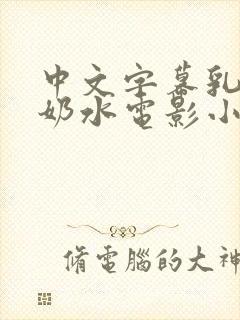 中文字幕乳
奶水电影小
脩電腦的大神